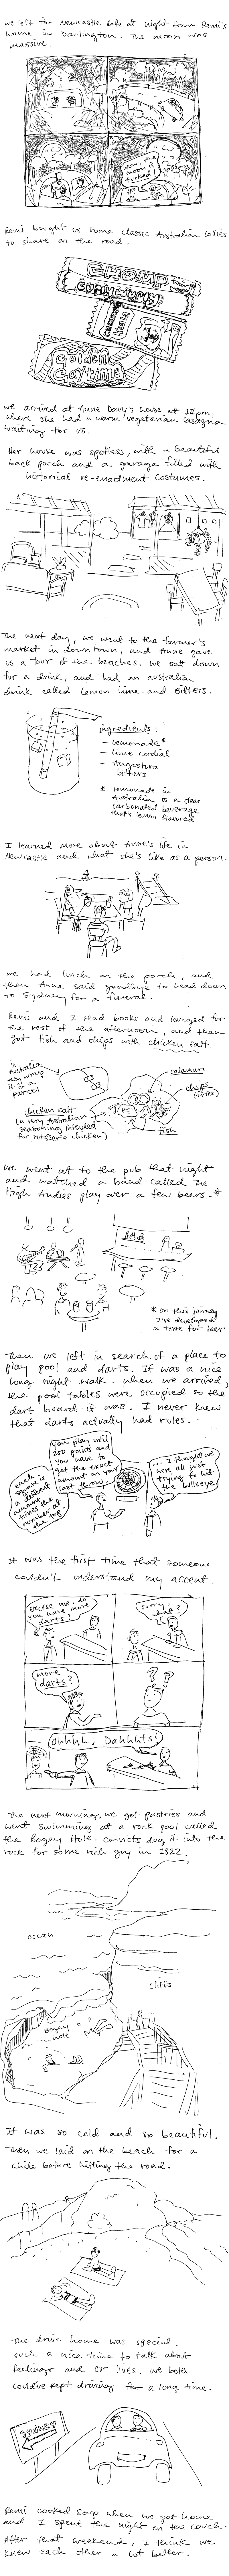 We left for Newcastle late at night from Remi's
home in Darlington. The moon was
massive.
wow, that
moon is
fucked!
Remi bought us some classic Australian lollies
to share on the road.
CHOMP
CURLY WURLY
Golden
Gaytime
we arrived at Anne Davy's house at 11pm,
where she had a warm vegetarian lasagna
waiting for us.
Her house was spotless, with a beautiful
back porch and a garage filled with
historical re-enactment costumes.
The next day, we went to the farmer's
market in downtown, and Anne gave
us a tour of the beaches. We sat down
for a drink, and had an australian
drink called Lemon Lime and Bitters.
ingredients:
- Lemonade*
- lime cordial
- Angostura
bitters
* lemonade in
Australia is a clear
carbonated beverage
that's lemon flavored
I learned more about Anne's life in
Newcastle and what she's like as a person.
we had lunch on the porch, and
then Anne said goodbye to head down
to Sydney for a funeral.
Remi and I read books and lounged for
the rest of the afternoon, and then
got fish and chips with chicken salt.
in Australia
they wrap
it in a
parcel
calamari
chips
(fries)
fish
chicken salt
(a very Australian
seasoning intended
for rotisserie chicken)
We went out to the pub that night
and watched a band called The
High Andies play over a few beers.*
* on this journey
I've developed
a taste for beer
Then we left in search of a place to
play pool and darts. It was a nice
long night walk. When we arrived,
the pool tables were occupied so the
dart board it was. I never knew
that darts actually had rules.
each
square is
a different
amount
times the
number at
the top
you play until
250 points and
you have to
get the exact
amount on your
last throw.
... I thought we
were all just
trying to hit
the bullseye
It was the first time that someone
couldn't understand my accent.
excuse me, do
you have more
darts?
sorry,
what?
more
darts?
? ?
?
Ohhhh, Dahhhts!
The next morning, we got pastries and
went swimming at a rock pool called
the Bogey Hole. Convicts dug it into the
rock for some rich guy in 1822.
ocean
cliffs
Bogey
Hole
It was so cold and so beautiful.
Then we laid on the beach for a
while before hitting the road.
The drive home was special.
such a nice time to talk about
feelings and our lives. we both
could've kept driving for a long time.
SYDNEY
Remi cooked soup when we got home
and I spent the night on the couch.
After that weekend, I think we
knew each other a lot better.